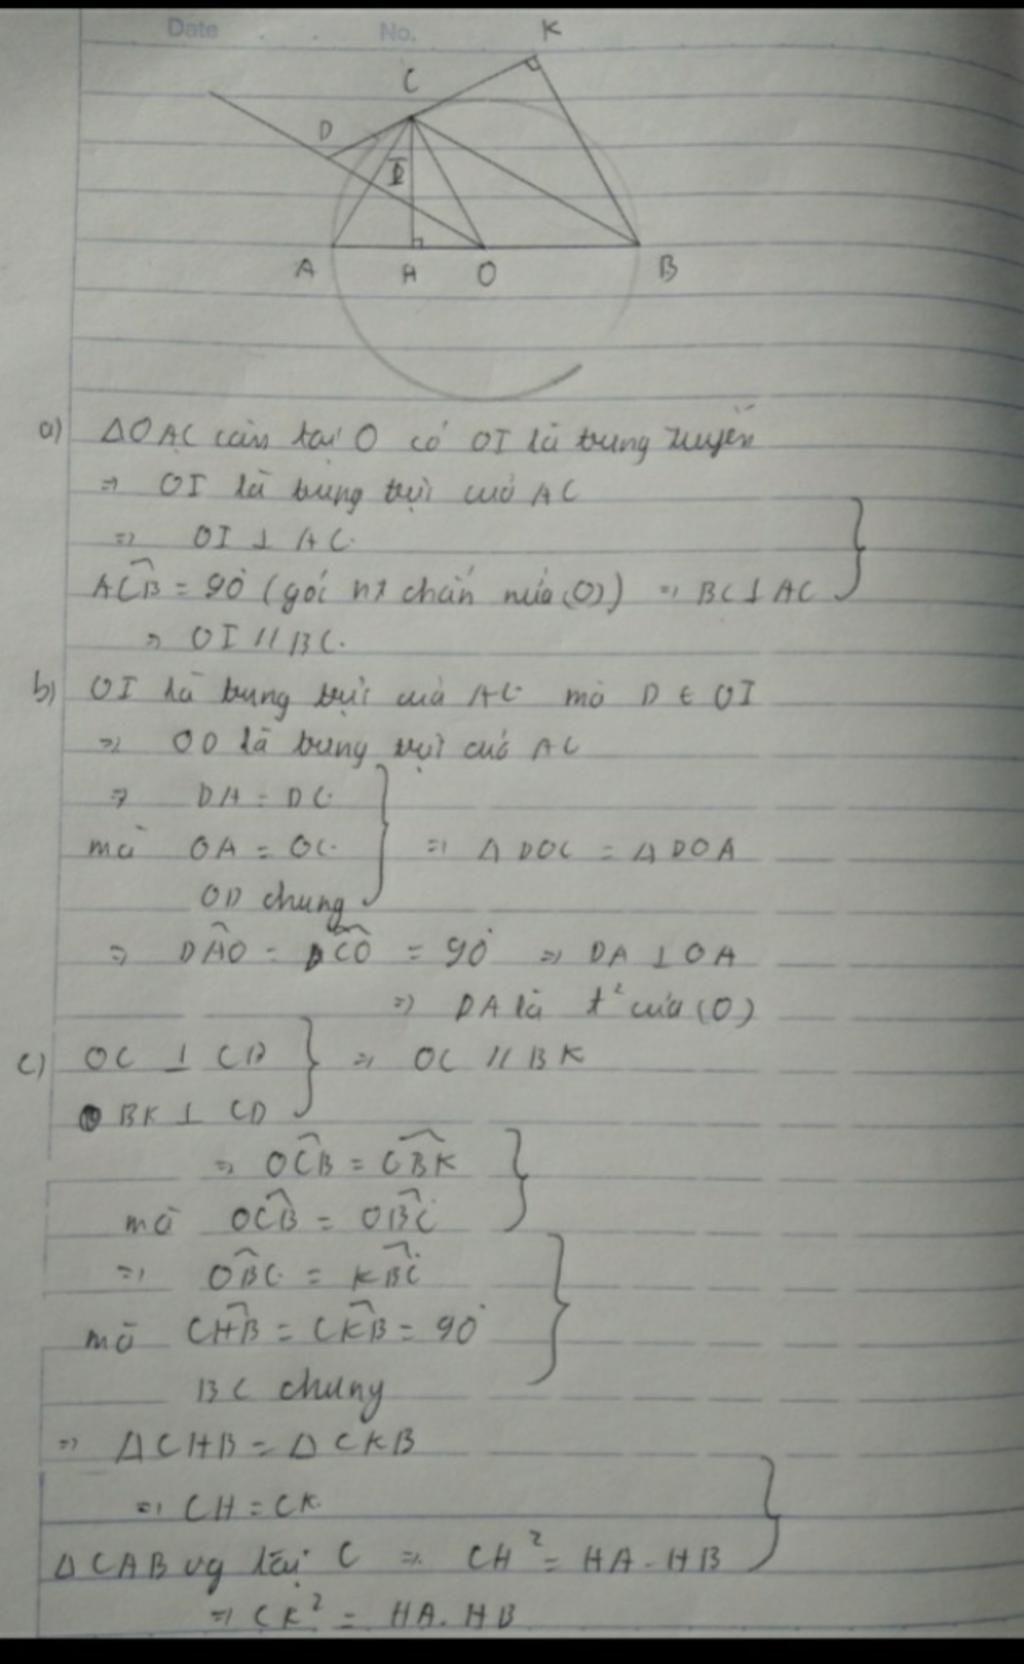 Date No.
K
C
D
I
A H O B
a) ΔOAC cân tại O có OI là trung tuyến
⇒ OI là trung trực của AC
⇒ OI ⊥ AC
ACB̂ = 90° (góc nt chắn nửa (O)) ⇒ BC ⊥ AC
⇒ OI // BC.
b) OI là trung trực của AC mà D ∈ OI
⇒ OD là trung trực của AC
⇒ DA = DC
mà OA = OC ⇒ Δ DOC = Δ DOA
OD chung
⇒ DÂO = DĈO = 90° ⇒ DA ⊥ OA
⇒ DA là t² của (O)
c) OC ⊥ CD ⇒ OC // BK
BK ⊥ CD
⇒ OĈB = CB̂K
mà OĈB = OB̂C
⇒ OB̂C = KB̂C
mà CĤB = CK̂B = 90°
BC chung
⇒ ΔCHB = Δ CKB
⇒ CH = CK
ΔCAB vg tại C ⇒ CH² = HA . HB
⇒ CK² = HA . HB